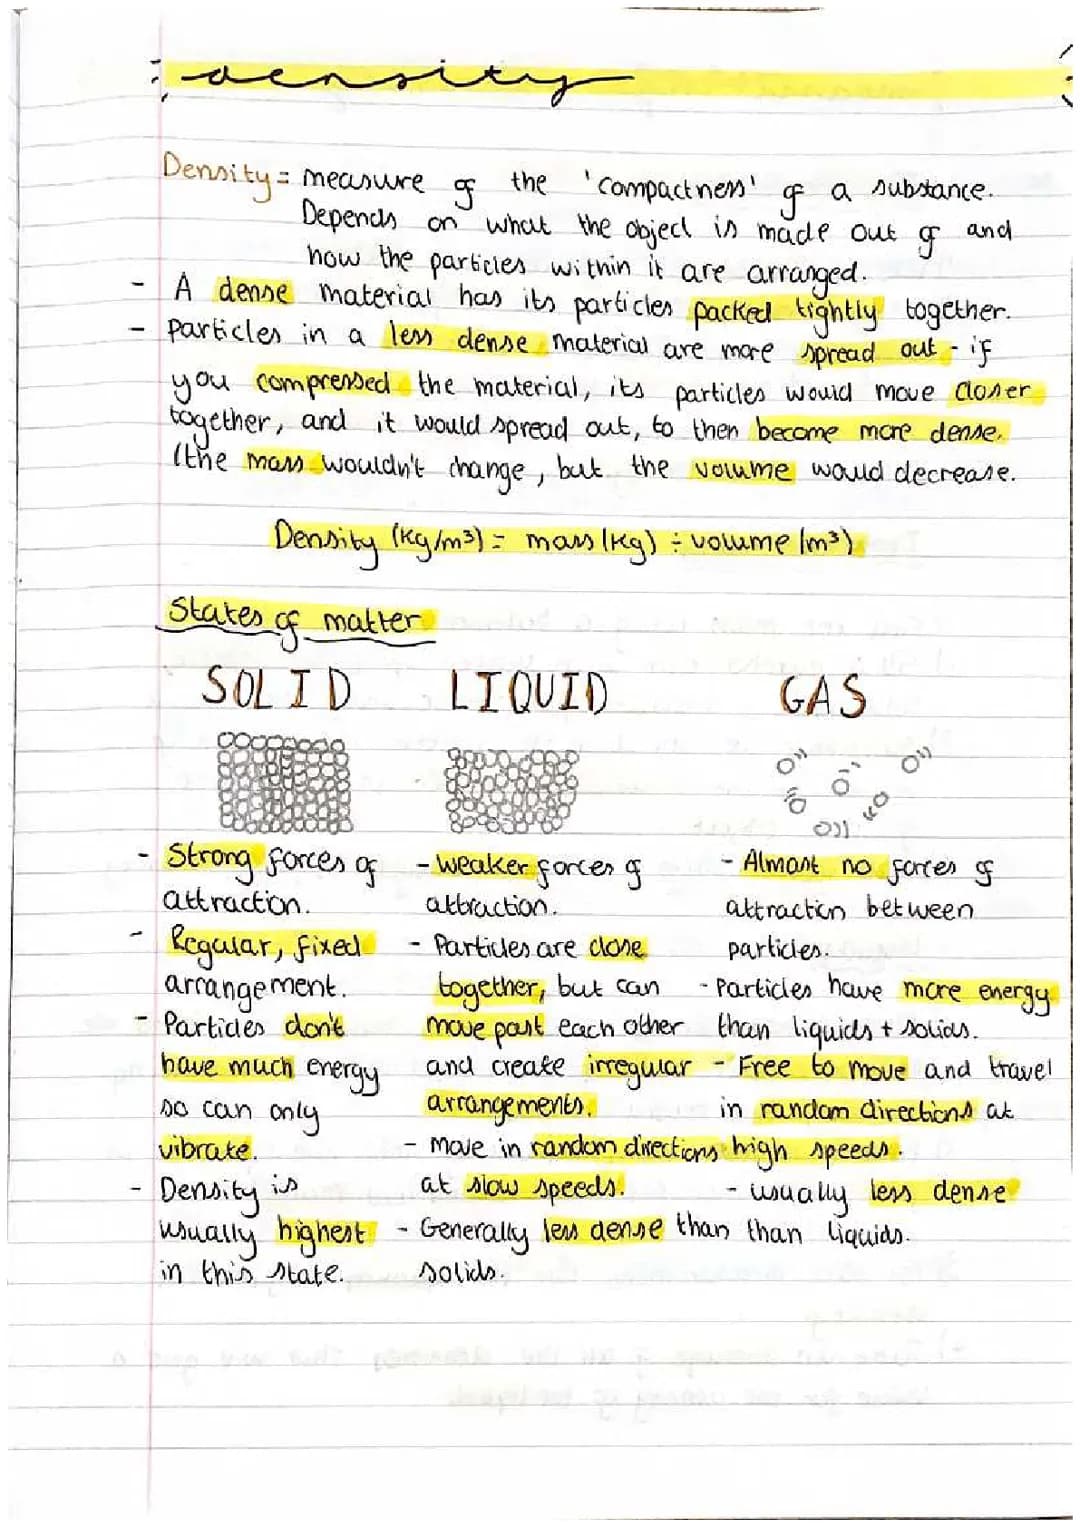 density
Density = measure of the 'compactness' of a substance.
Depends on what the object is made out of and
how the particles within it are arranged.
- A dense material has its particles packed tightly together.
- Particles in a less dense material are more spread out - if
you compressed the material, its particles would move closer
together, and it would spread out, to then become more dense.
(the mass wouldn't change, but the volume would decrease.
Density (kg/m³) = mass (kg) ÷ volume (m³)
States of matter
SOLID
- Strong forces of
attraction.
- Regular, fixed
arrangement.
- Particles don't
have much energy
so can only
vibrate.
- Density is
usually highest
in this state.
LIQUID
- weaker forces of
attraction.
- Particles are close
together, but can
move past each other
and create irregular
arrangements.
- Move in random directions
at slow speeds.
- Generally less dense than
solids.
GAS
- Almost no forces of
attraction between
particles.
- Particles have more energy
than liquids + solids.
- Free to move and travel
in random directions at
high speeds.
- usually less dense
than liquids.